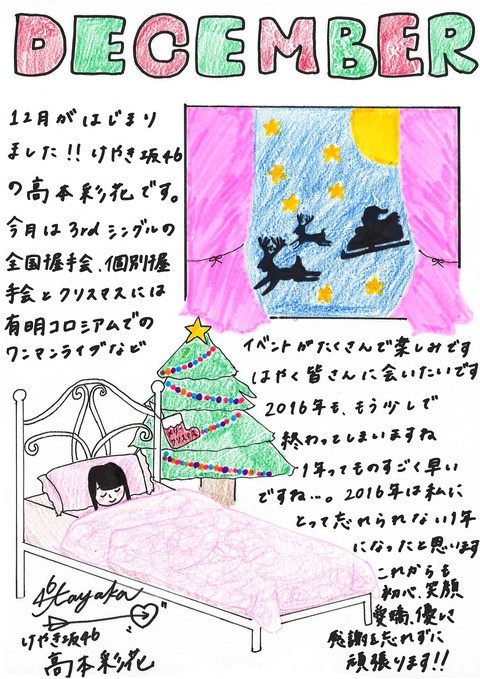 DECEMBER
12月がはじまり
ました!!けやき坂46
の高本彩花です。
今月は3rdシングルの
全国握手会、個別握
手会とクリスマスには
有明コロシアムでの
ワンマンライブなど
イベントがたくさんで楽しみです
はやく皆さんに会いたいです
2016年も、もう少しで
終わってしまいますね
1年ってものすごく早い
ですね…。2016年は私に
とって忘れられない1年
になったと思います
これからも
初心、笑顔
愛嬌、優しさ
感謝を忘れずに
頑張ります!!
メリー
クリスマス
46 Ayaka
けやき坂46
高本彩花